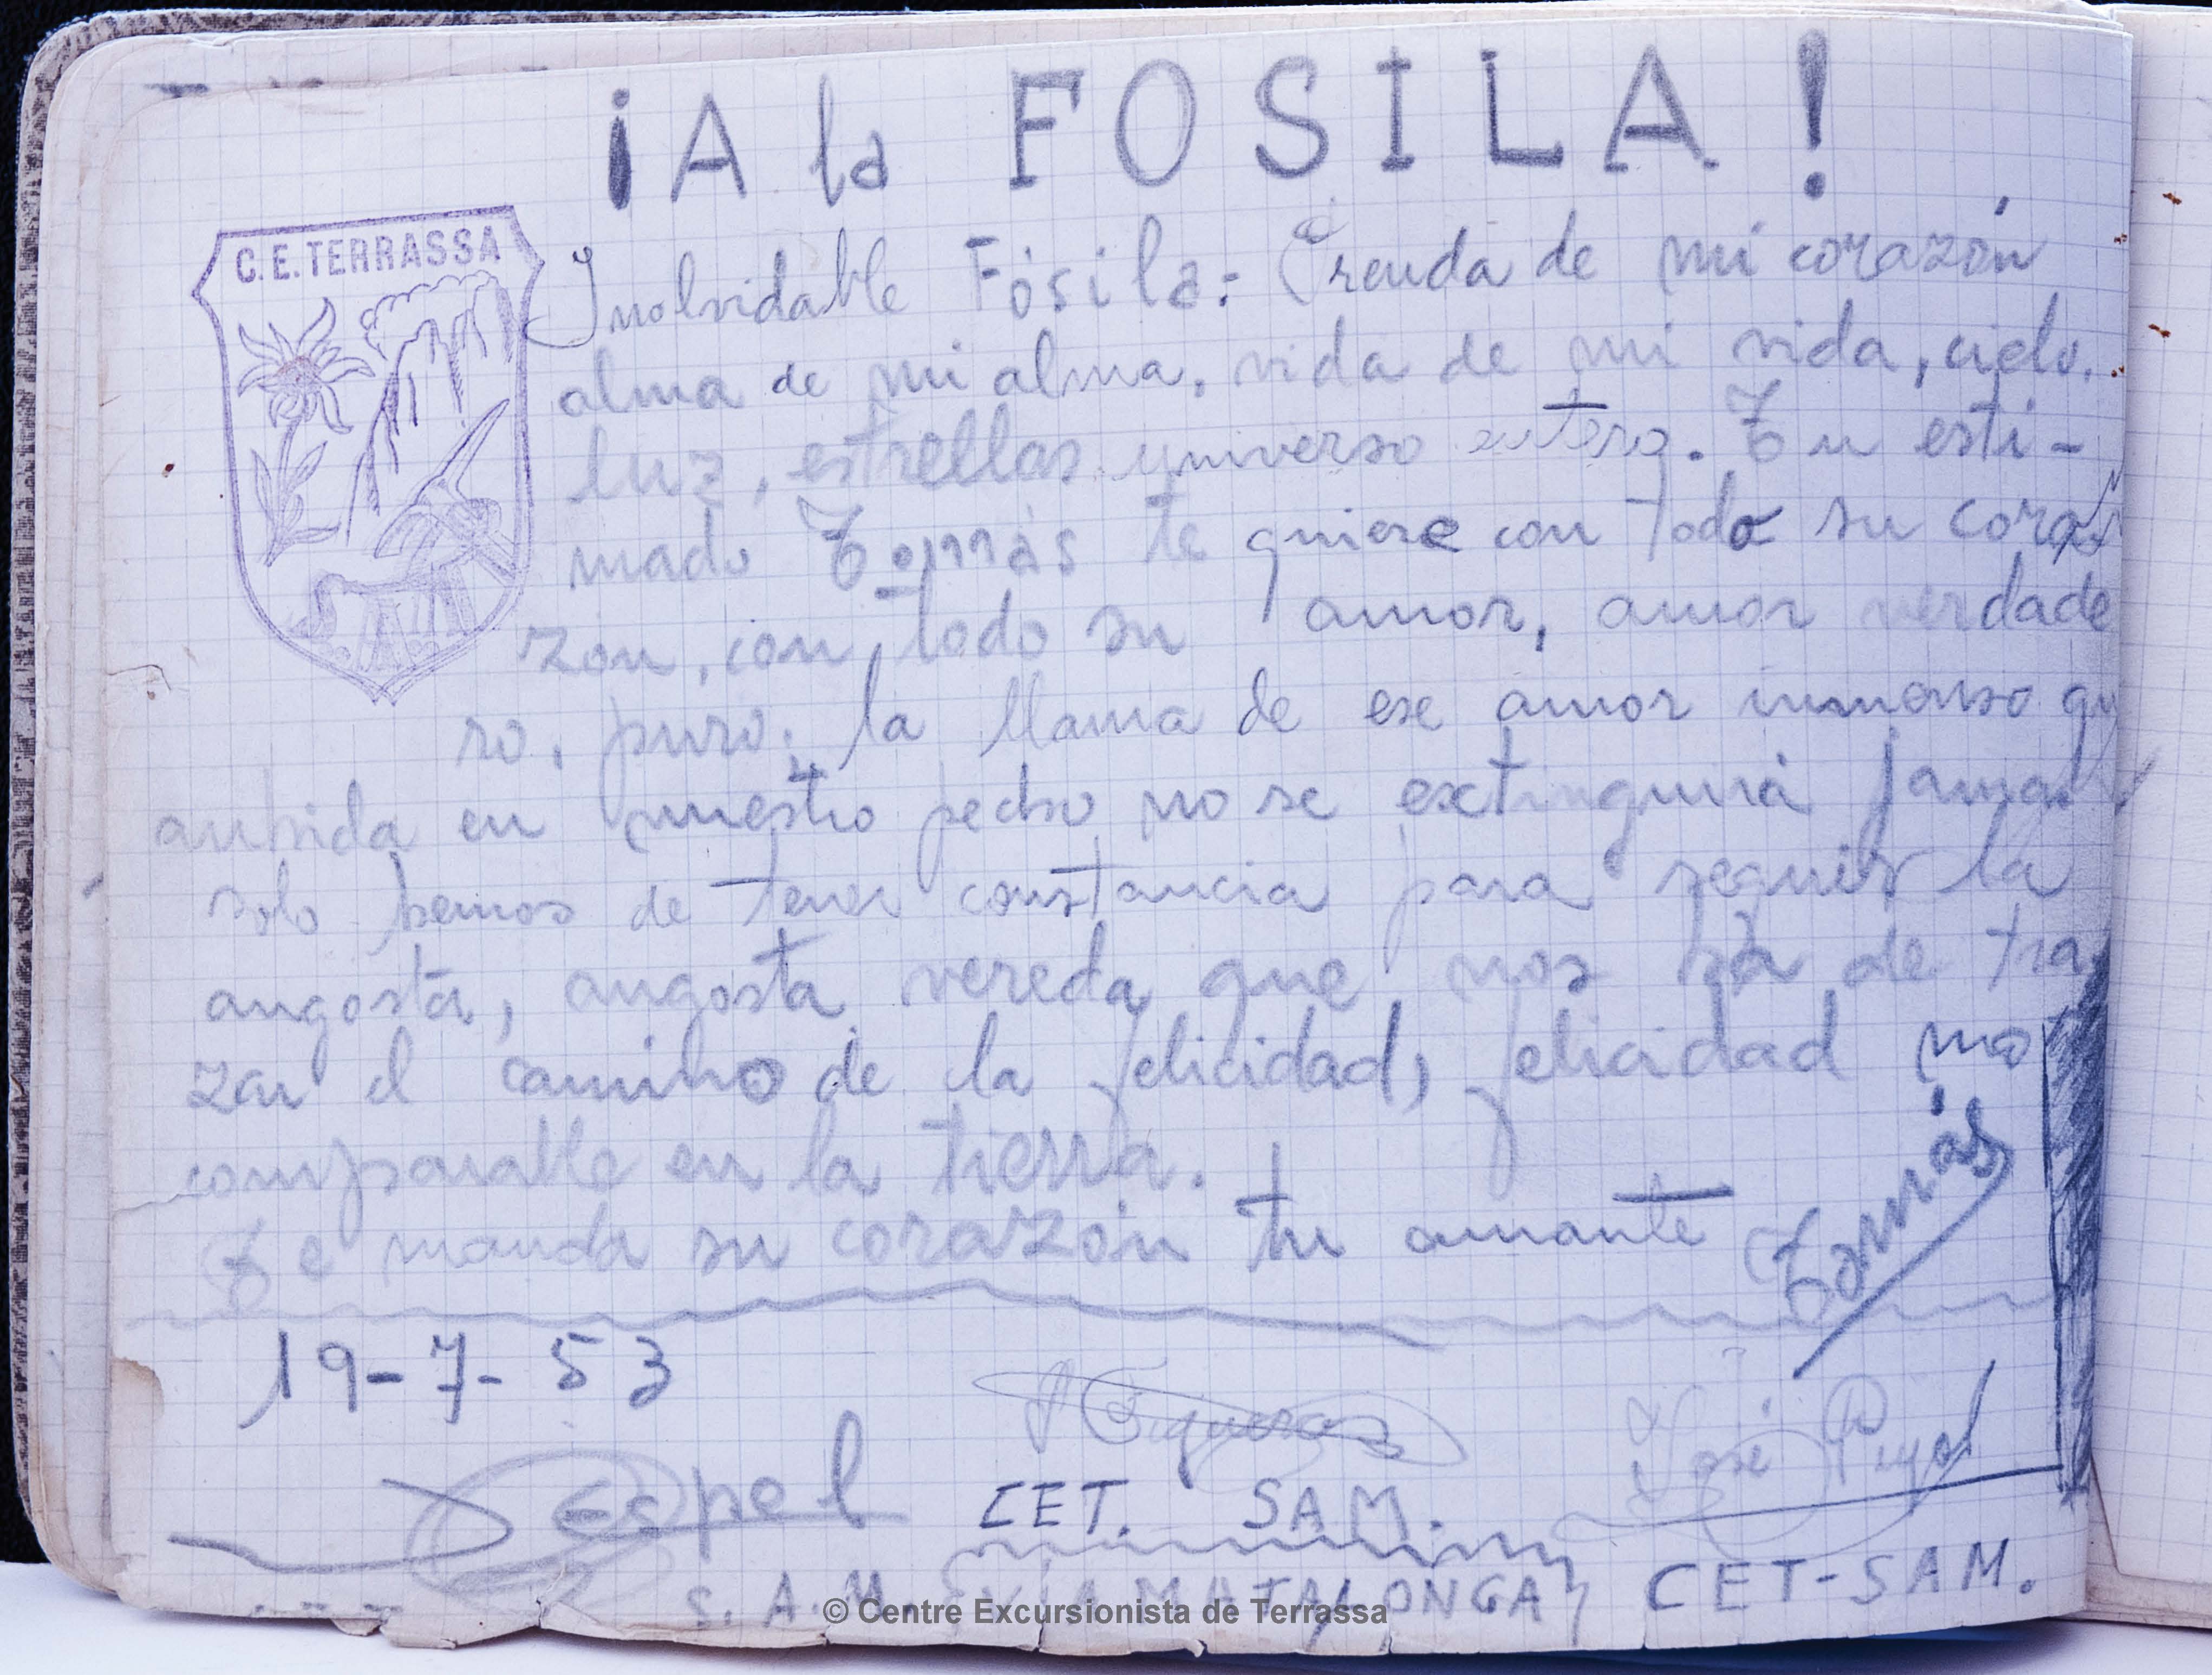 ¡A la FOSILA!
C.E.TERRASSA
Inolvidable Fósila: Prenda de mi corazón,
alma de mi alma, vida de mi vida, cielo,
luz, estrellas universo entero. Tu esti-
mado Tomás te quiere con todo su cora
zon, con todo su amor, amor verdade
ro, puro; la llama de ese amor inmenso qu
anhida en nuestro pecho no se extinguirá jamas
solo hemos de tener constancia para seguir la
angosta, angosta vereda que nos ha de tra
zar el camino de la felicidad, felicidad no
comparable en la tierra.
Te manda su corazón tu amante Tomás
19-7-53
Espel
Figueras
José Puyol
CET. SAM.
S. A. M. VIAMATALONGA
CET-SAM.
© Centre Excursionista de Terrassa